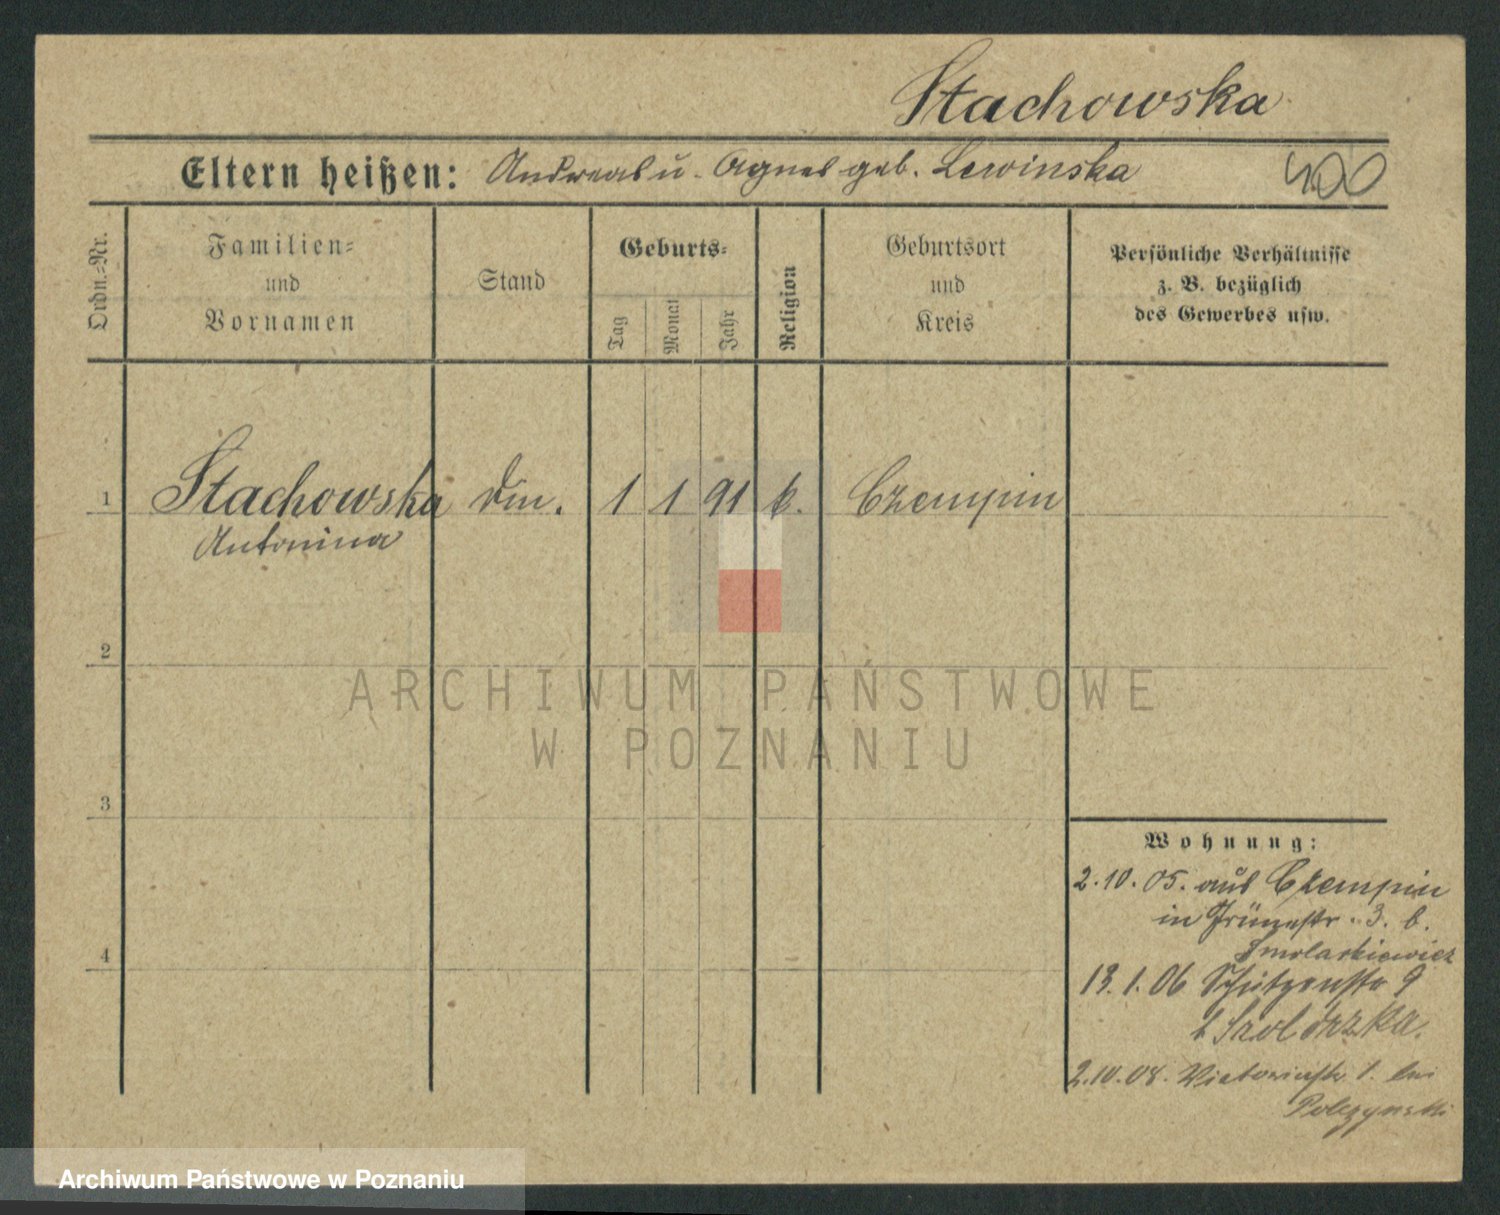 Stachowska
Eltern heißen: Andreas u. Agnes geb. Lewinska
Ordn.-Nr.
Familien- und Vornamen
Stand
Geburts-
Tag
Monat
Jahr
Religion
Geburtsort und Kreis
Persönliche Verhältnisse
z. B. bezüglich
des Gewerbes usw.
1 Stachowska Din. 1 1 91 k. Czempin
Antonina
2
ARCHIWUM PAŃSTWOWE
W POZNANIU
3
Wohnung:
2.10.05. aus Czempin
in Grünestr. 3. b.
Smolarkiewicz
4
13.1.06 Schützenstr 9
b
2.10.08. Victoriastr. 1. bei
Archiwum Państwowe w Poznaniu